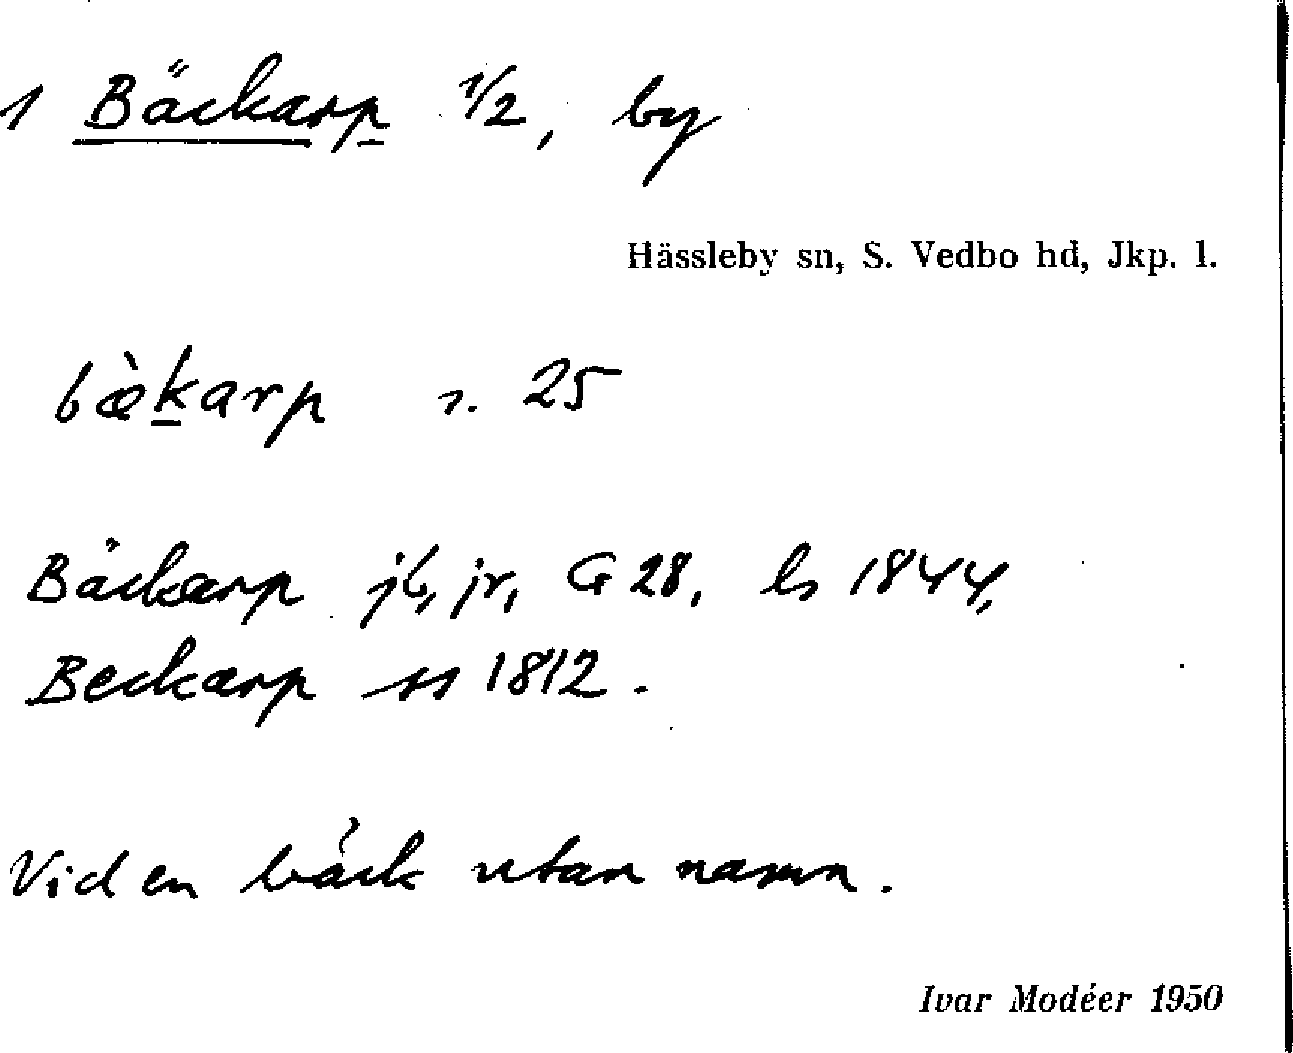 1 Bäckarp 1/2, by
Hässleby sn, S. Vedbo hd, Jkp. l.
bæ̀karp s. 25
Bäckarp jb, jr, G 28, ls 1844,
Beckarp ss 1812.
Vid en bäck utan namn.
Ivar Modéer 1950